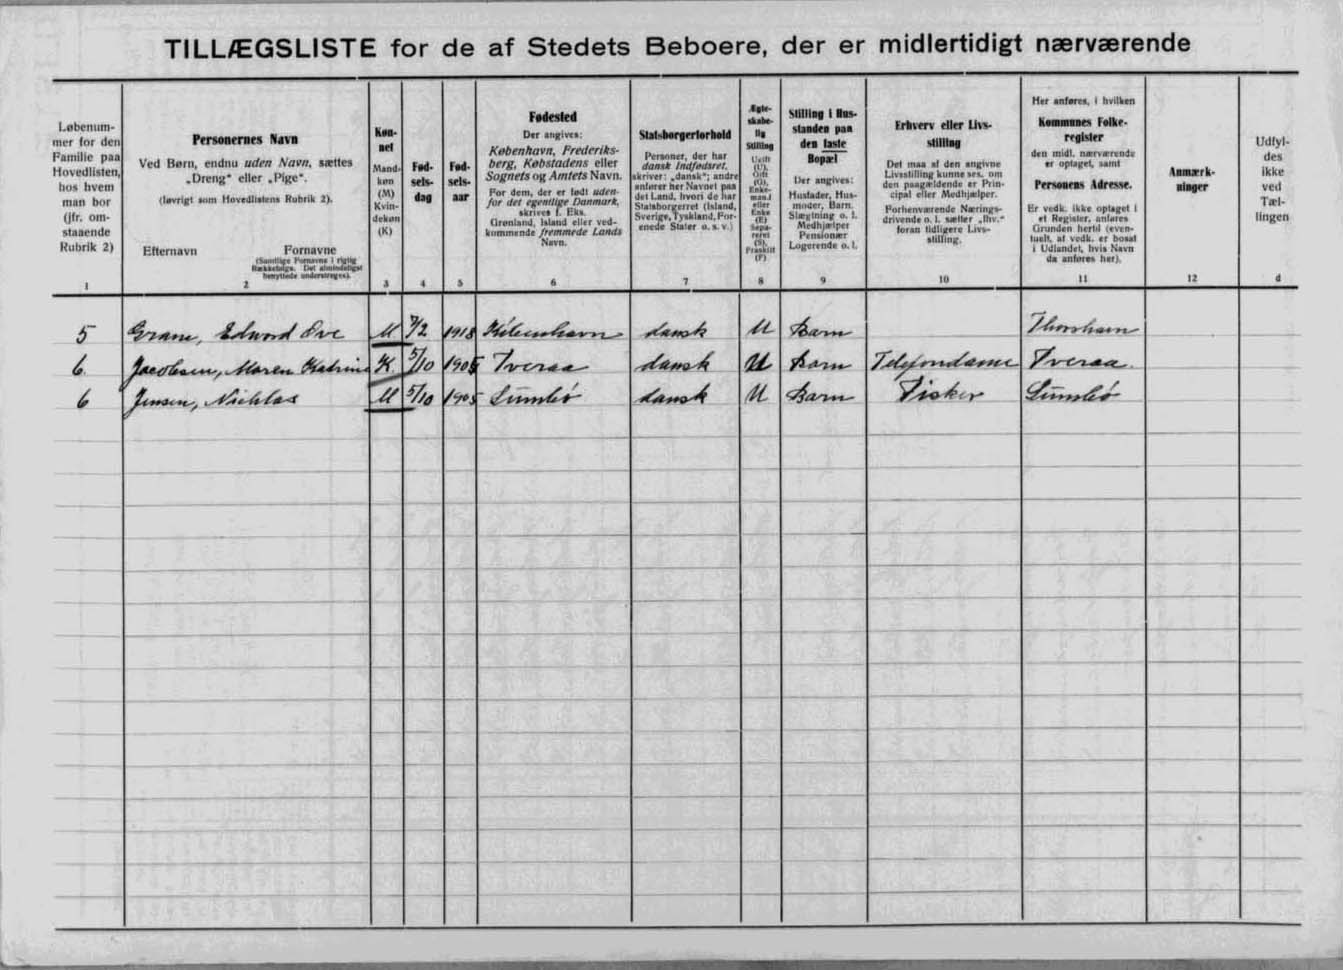 TILLÆGSLISTE for de af Stedets Beboere, der er midlertidigt nærværende
Løbenum-
mer for den
Familie paa
Hovedlisten,
hos hvem
man bor
(jfr. om-
staaende
Rubrik 2)
1
Personernes Navn
Ved Børn, endnu uden Navn, sættes
„Dreng“ eller „Pige“.
(Iøvrigt som Hovedlistens Rubrik 2).
Efternavn Fornavne
(Samtlige Fornavne i rigtig
Rækkefølge. Det almindeligst
benyttede understreges).
2
Køn-
net
Mand-
køn
(M)
Kvin-
dekøn
(K)
3
Fød-
sels-
dag
4
Fød-
sels-
aar
5
Fødested
Der angives:
København, Frederiks-
berg, Købstadens eller
Sognets og Amtets Navn.
For dem, der er født uden-
for det egentlige Danmark,
skrives f. Eks.
Grønland, Island eller ved-
kommende fremmede Lands
Navn.
6
Statsborgerforhold
Personer, der har
dansk Indfødsret,
skriver: „dansk“; andre
anfører her Navnet paa
det Land, hvori de har
Statsborgerret (Island,
Sverige, Tyskland, For-
enede Stater o. s. v.)
7
Ægte-
skabe-
lig
Stilling
Ugift
(U),
Gift
(G),
Enke-
mand
eller
Enke
(E)
Sepa-
reret
(S),
Fraskilt
(F)
8
Stilling i Hus-
standen paa
den faste
Bopæl
Der angives:
Husfader, Hus-
moder, Barn.
Slægtning o. l.
Medhjælper
Pensionær
Logerende o. l.
9
Erhverv eller Livs-
stilling
Det maa af den angivne
Livsstilling kunne ses, om
den paagældende er Prin-
cipal eller Medhjælper.
Forhenværende Nærings-
drivende o. l. sætter „fhv.“
foran tidligere Livs-
stilling.
10
Her anføres, i hvilken
Kommunes Folke-
register
den midl. nærværende
er optaget, samt
Personens Adresse.
Er vedk. ikke optaget i
et Register, anføres
Grunden hertil (even-
tuelt, at vedk. er bosat
i Udlandet, hvis Navn
da anføres her).
11
Anmærk-
ninger
12
Udfyl-
des
ikke
ved
Tæl-
lingen
d
5 Gram, Edward Ove M 7/2 1918 København dansk U Barn Thorshavn
6. Jacobsen, Maren Katrine K. 5/10 1905 Tveraa dansk U Barn Telefondame Tveraa.
6 Jensen, Nicklas M 5/10 1905 Sumbø dansk U Barn Fisker Sumbø